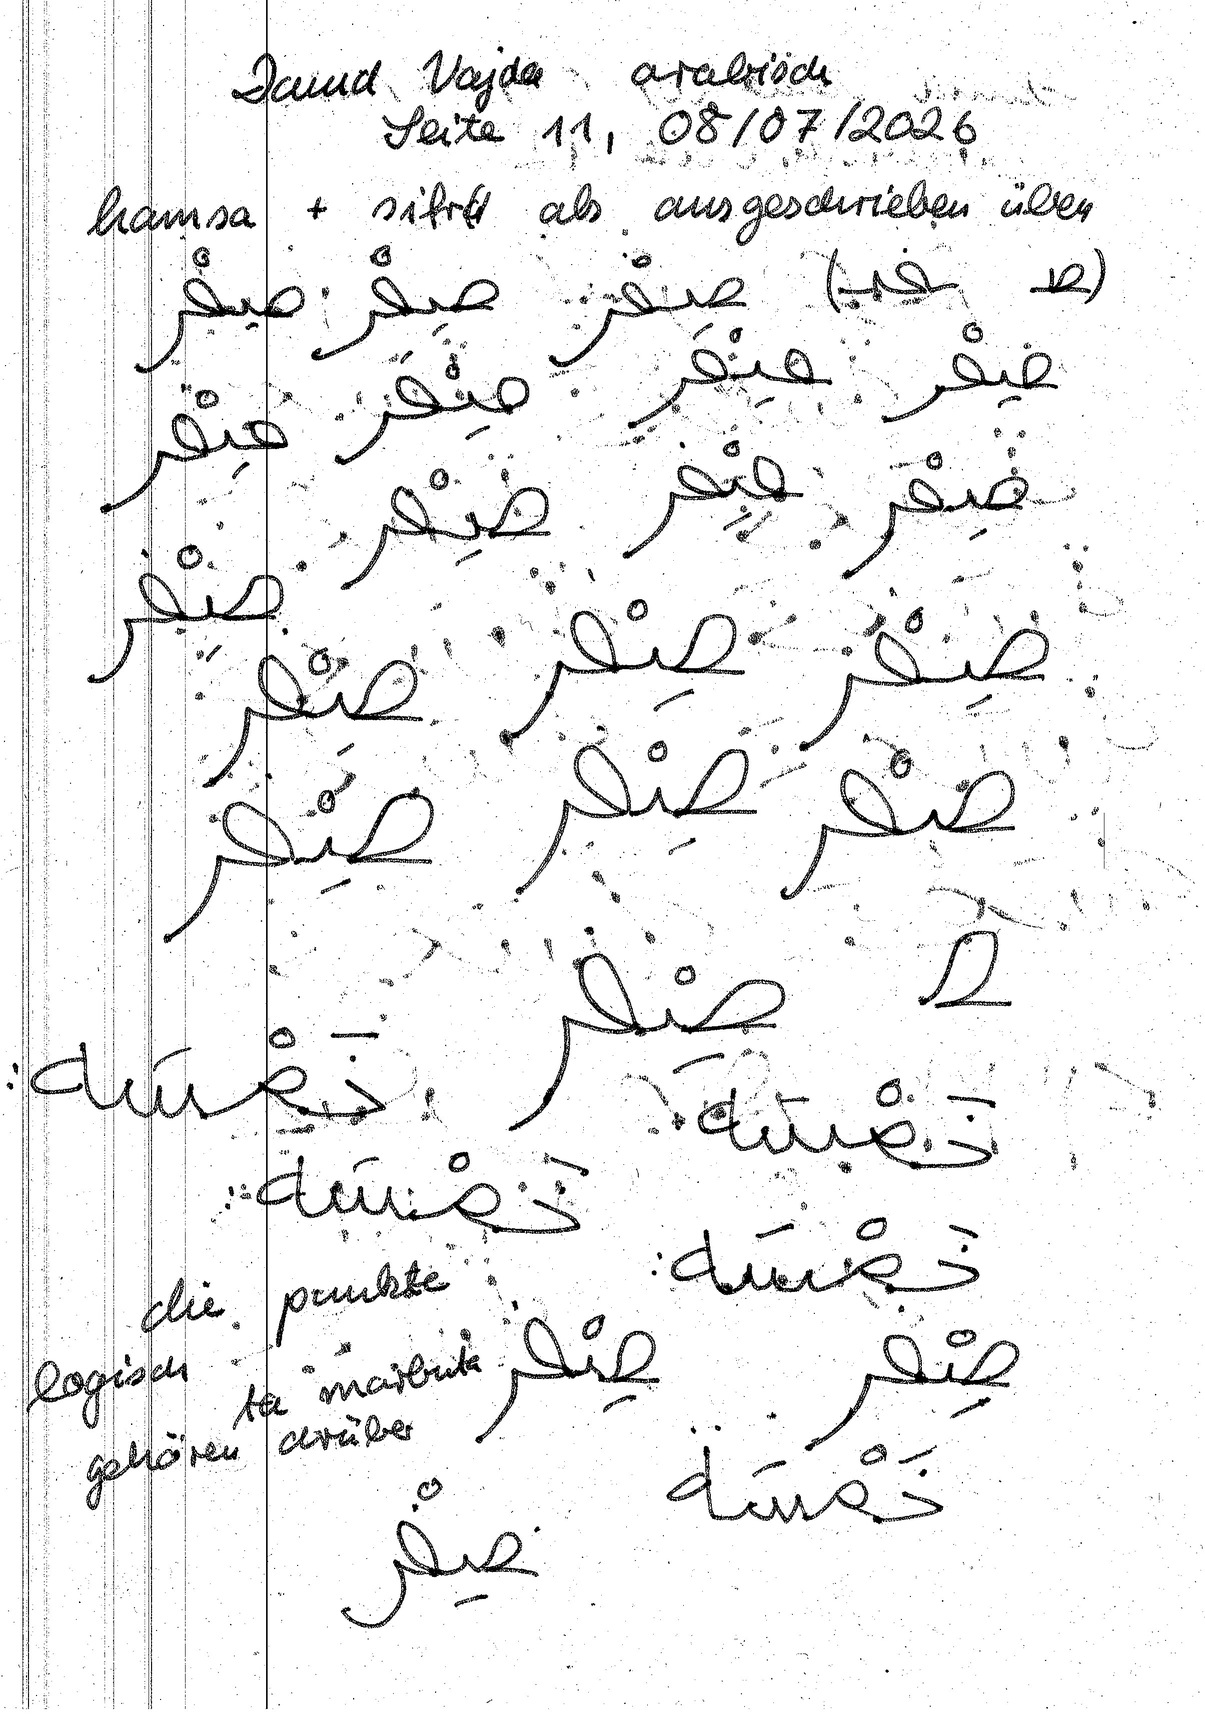 David Vajda arabisch
Seite 11, 08/07/2026
hamsa + sifr als ausgeschrieben üben
صِفْر صِفْر صِفْر
صِفْر صِفْر
صِفْر صِفْر
صِفْر صِفْر صِفْر
صِفْر
صِفْر صِفْر صِفْر
صِفْر صِفْر صِفْر
صِفْر
خَمْسَة
خَمْسَة
خَمْسَة
خَمْسَة
die punkte
صِفْر صِفْر
logisch ta marbuta
gehören drüber
خَمْسَة
صِفْر